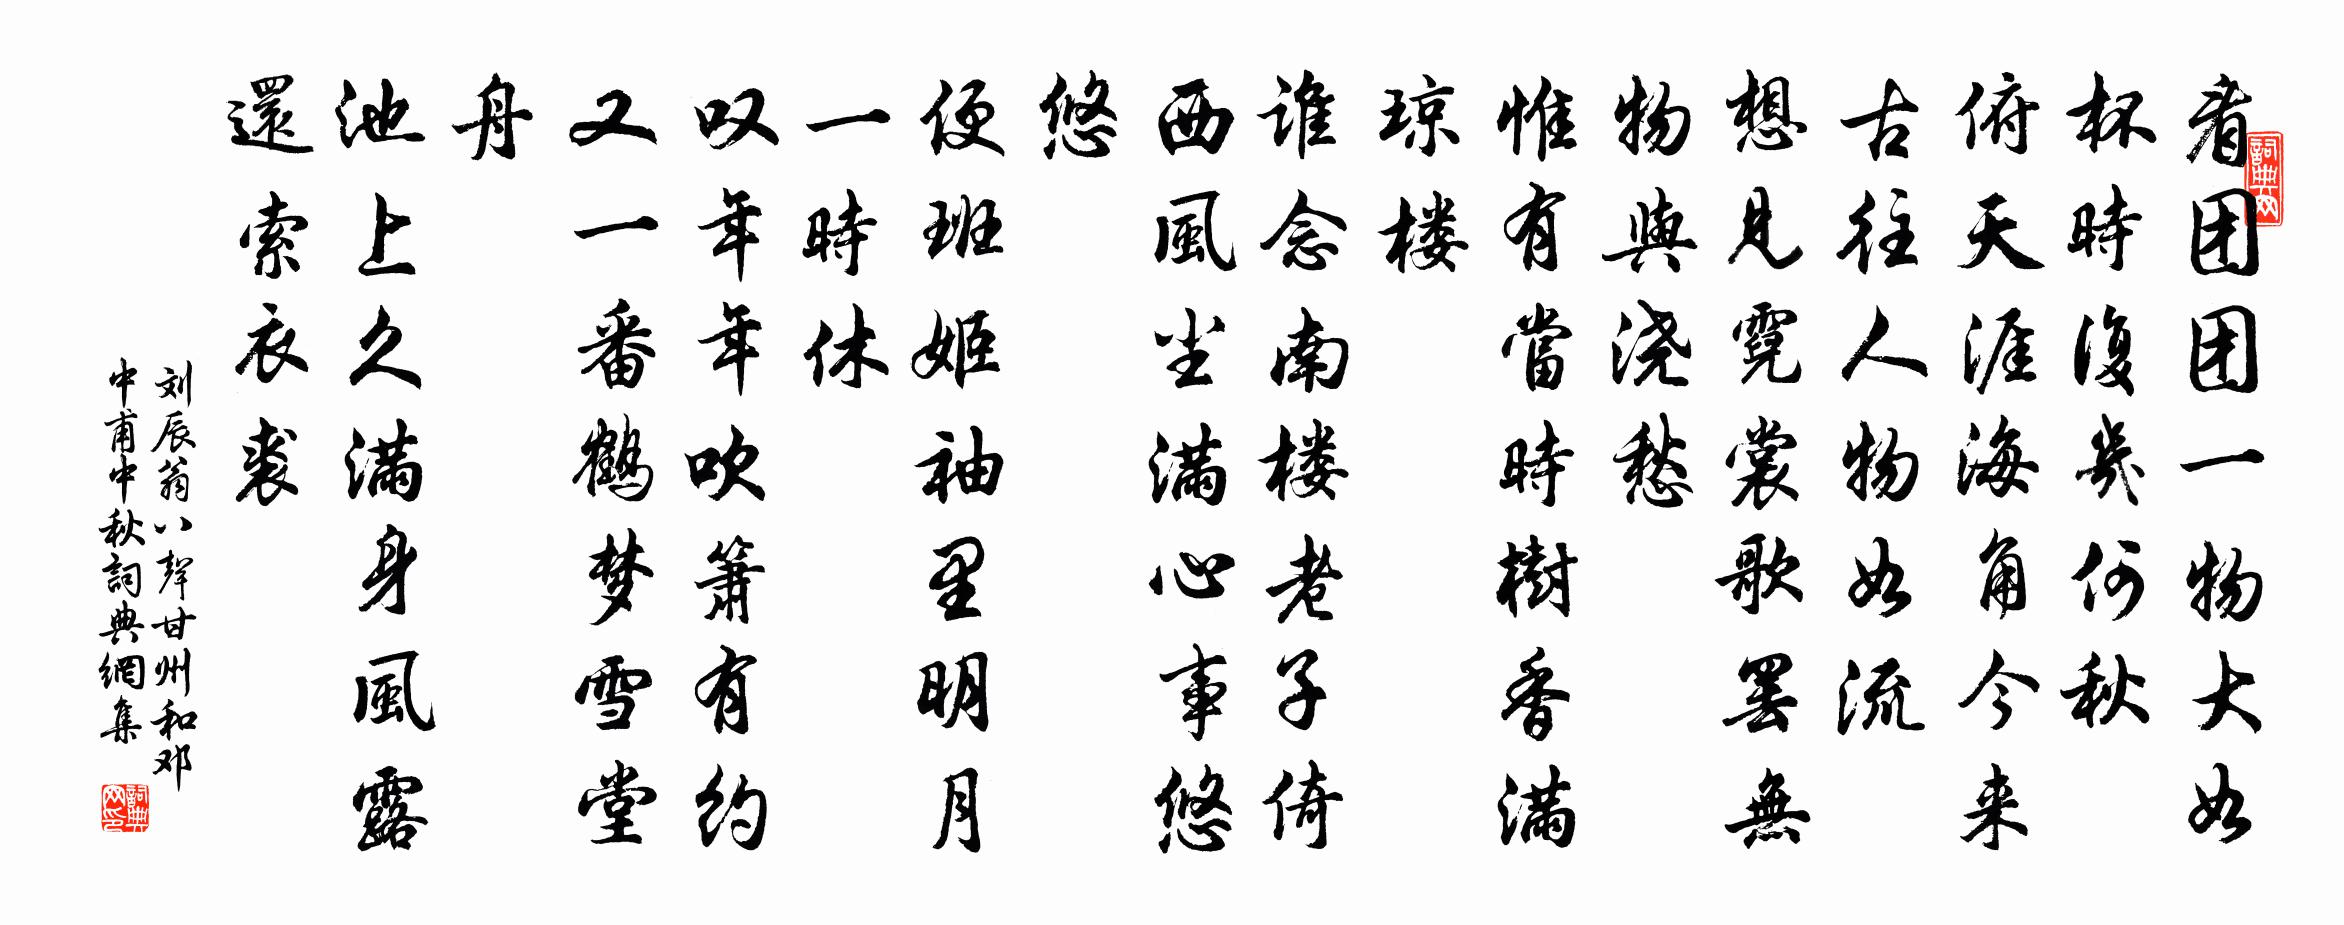 看团团一物大如
杯時復幾何秋
俯天涯海角今来
古往人物如流
想見霓裳歌罢無
物與浇愁
惟有當時樹香满
琼楼
谁念南楼老子倚
西風尘满心事悠
悠
便班姬袖里明月
一時休
叹年年吹簫有约
又一番鹤梦雪堂
舟
池上久满身風露
還索衣裘
刘辰翁八聲甘州和邓
中甫中秋詞典網集
詞典网
詞典网印